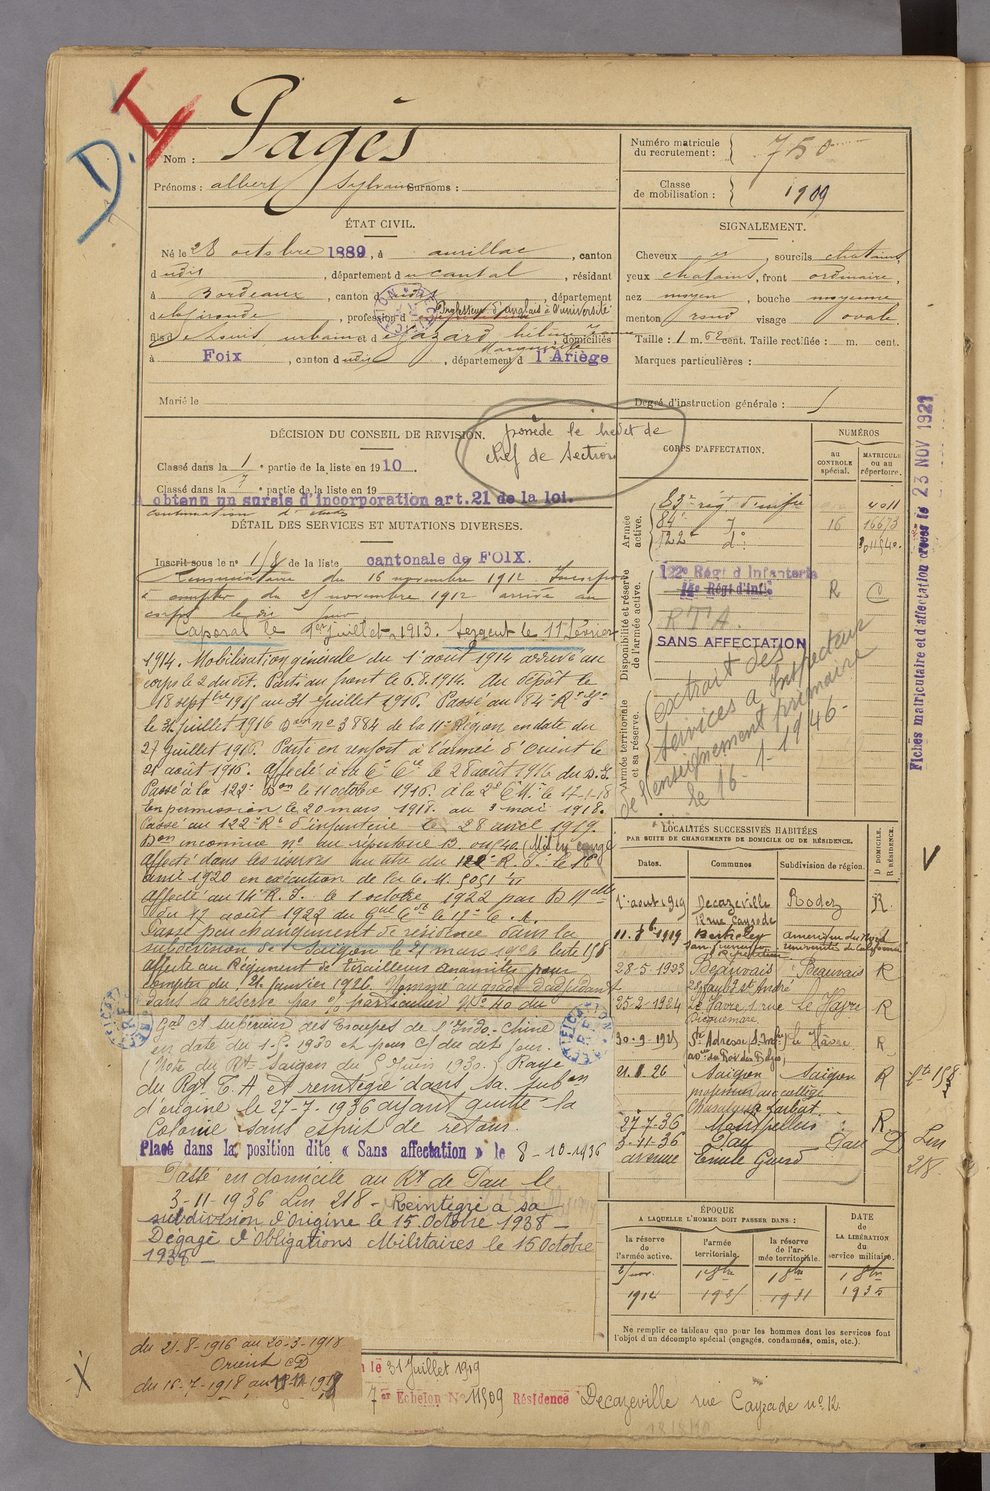 D.I
Nom : Pagès
Prénoms : albert Sylvain Surnoms :
Numéro matricule du recrutement : 750
Classe de mobilisation : 1909
ÉTAT CIVIL.
Né le 28 octobre 1889, à aurillac, canton
d udit, département du cantal, résidant
à Bordeaux, canton d udit, département
d e la Gironde, profession d Professeur d'anglais à l'université
fils de Louis urbain et d e Hazard hélène Marguerite domiciliés
à Foix, canton d udit, département d l'Ariège
Marié le
SIGNALEMENT.
Cheveux et, sourcils chatains,
yeux chatains, front ordinaire
nez moyen, bouche moyenne
menton rond visage ovale.
Taille : 1 m. 62 cent. Taille rectifiée : m. cent.
Marques particulières :
Degré d'instruction générale : 5
DÉCISION DU CONSEIL DE REVISION.
possède le brevet de
chef de section
Classé dans la 1e partie de la liste en 1910.
Classé dans la 7e partie de la liste en 19
a obtenu un sursis d'incorporation art. 21 de la loi.
continuation d'études
DÉTAIL DES SERVICES ET MUTATIONS DIVERSES.
Inscrit sous le n° 1/8 de la liste cantonale de FOIX.
Renonciataire du 16 novembre 1912. Incorporé
à compter du 25 novembre 1912 arrivé au
corps le dit jour
Caporal le 1er juillet 1913. Sergent le 11 février
1914. Mobilisation générale du 1er août 1914 arrivé au
corps le 2 du dit. Parti au front le 6.8.1914. Au dépôt le
18 septbre 1915 au 31 juillet 1916. Passé au 84e R.I.
le 31 juillet 1916 Don n° 3884 de la 11e Région en date du
27 juillet 1916. Parti en renfort à l'armée d'Orient le
21 août 1916. affecté à la 6e Cie le 28 août 1916 du D.I.
Passé à la 122e Don le 11 octobre 1916. à la 2e C.M. le 17-1-18
En permission le 20 mars 1918. au 3 mai 1918.
Passé au 122e Rt d'infanterie le 28 avril 1919.
Don inconnue n° au répertoire
affecté dans les réserves au titre du 122e R.I. le 16
avril 1920 en exécution de la C.M. 5051
affecté au 14e R.I. le 1 octobre 1922 par D Mlle
du 17 août 1922 du Gal Ct le 17e C.A.
Passé par changement de résidence dans la
subdivision de Saïgon le 21 mars 1926 liste 158
affecté au Régiment de Tirailleurs annamites pour
compter du 21 janvier 1926. Nommé au grade d'adjudant
dans la réserve par o/ particulier N° 40 du
Gal Ct supérieur des Troupes de l'Indo-Chine
en date du 1-5-1930 et pour C/ du dit jour.
Note du Rt Saïgon du 5 Juin 1930. Rayé
du Rgt T.A et reintégré dans sa subon
d'origine le 27-7-1936 ayant quitté la
Colonie sans esprit de retour.
Placé dans la position dite « Sans affectation » le 8-10-1936
Passé en domicile au Rt de Pau le
3-11-1936 Lin 218 - Reintégré a sa
subdivision d'origine le 15 Octobre 1938 -
Dégagé d'Obligations Militaires le 15 Octobre
1938 -
du 21-8-1916 au 20-3-1918
Orient CD
du 16-7-1918 au
le 31 juillet 1919
7er Echelon N° 11509 Résidence Decazeville rue Cayrade n° 12.
CORPS D'AFFECTATION.
NUMÉROS
au CONTROLE spécial.
MATRICULE ou au répertoire.
Armée active.
83e rég d'infie 4011
84e d° 16 16673
122e d°
Disponibilité et réserve de l'armée active.
122e Régt d'Infanterie R C
14e Régt d'Infie
R T A.
SANS AFFECTATION
Armée territoriale et sa réserve.
extrait des
services à Inspecteur
de l'enseignement primaire
le 16-1-1946-
Fiches matriculaire et d'affectation créées le 23 NOV 1921
LOCALITÉS SUCCESSIVES HABITÉES
PAR SUITE DE CHANGEMENTS DE DOMICILE OU DE RÉSIDENCE.
Dates. Communes Subdivision de région. D DOMICILE. R RÉSIDENCE.
1er août 1919 Decazeville Rodez R.
12 rue Cayrade
11. 7b 1919 Berkeley amérique du Nord
San francisco université de Californie
28-5-1923 Beauvais Beauvais R
25-2-1924 Le Havre, 1 rue Le Havre R
Dicquemare
30-9-1925 Ste Adresse (S. Infre) le Havre R
21.8.26 Saïgon Saïgon R
professeur au collège
Chasseloup Laubat
27-7-36 Montpellier R
3-11-36 Pau Pau D Lin 218.
avenue Emile Guard
ÉPOQUE
A LAQUELLE L'HOMME DOIT PASSER DANS :
DATE de LA LIBÉRATION du service militaire.
la réserve de l'armée active. l'armée territoriale. la réserve de l'armée territoriale.
25 nov. 1 8bre 1 8bre 1 8bre
1914 1925 1931 1935
Ne remplir ce tableau que pour les hommes dont les services font
l'objet d'un décompte spécial (engagés, condamnés, omis, etc.).